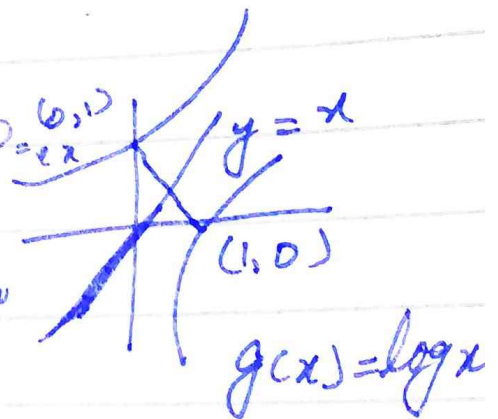 (0,1)
= e x
y = x
(1, 0)
g(x) = log x